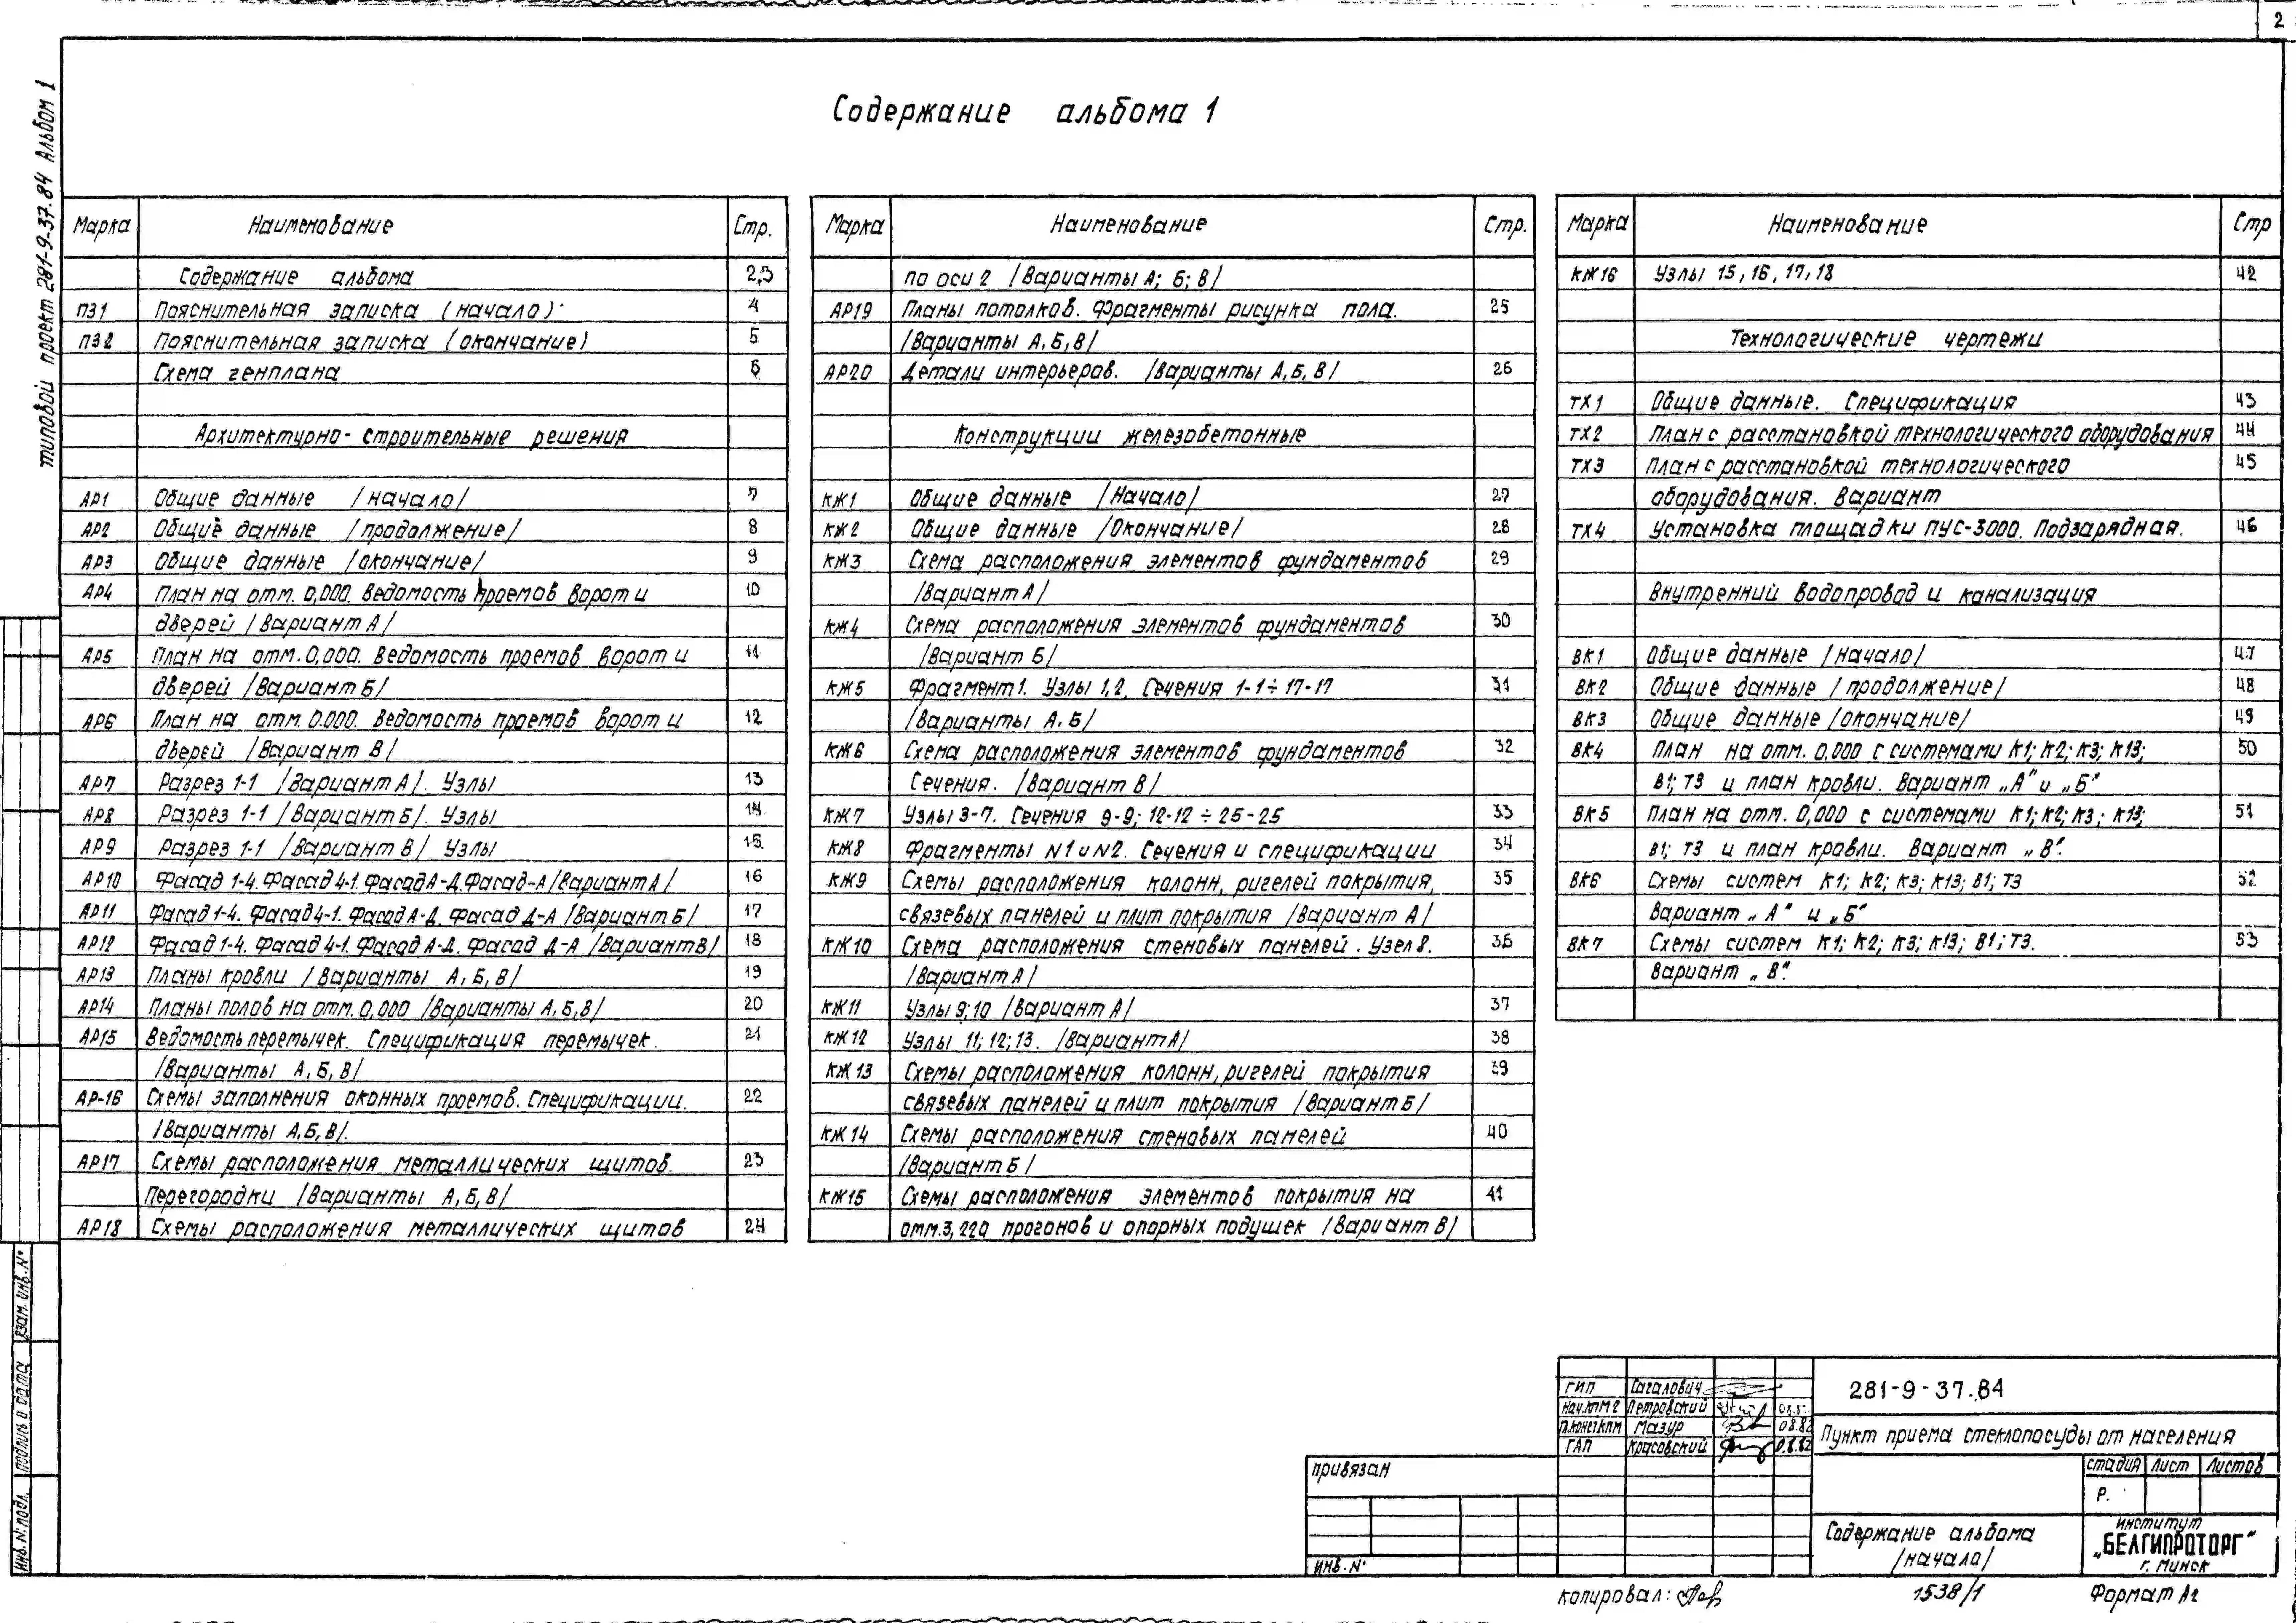 2
Содержание альбома 1
типовой проект 281-9-37.84 Альбом 1
Марка Наименование Стр.
Содержание альбома 2,3
ПЗ1 Пояснительная записка (начало) 4
ПЗ2 Пояснительная записка (окончание) 5
Схема генплана 6
Архитектурно-строительные решения
АР1 Общие данные /начало/ 7
АР2 Общие данные /продолжение/ 8
АР3 Общие данные /окончание/ 9
АР4 План на отм. 0,000. Ведомость проемов ворот и 10
дверей /Вариант А/
АР5 План на отм. 0,000. Ведомость проемов ворот и 11
дверей /Вариант Б/
АР6 План на отм. 0.000. Ведомость проемов ворот и 12
дверей /Вариант В/
АР7 Разрез 1-1 /Вариант А/. Узлы 13
АР8 Разрез 1-1 /Вариант Б/. Узлы 14
АР9 Разрез 1-1 /Вариант В/ Узлы 15
АР10 Фасад 1-4. Фасад 4-1. Фасад А-Д. Фасад-А /Вариант А/ 16
АР11 Фасад 1-4. Фасад 4-1. Фасад А-Д. Фасад Д-А /Вариант Б/ 17
АР12 Фасад 1-4. Фасад 4-1. Фасад А-Д. Фасад Д-А /Вариант В/ 18
АР13 Планы кровли /Варианты А, Б, В/ 19
АР14 Планы полов на отм. 0,000 /Варианты А, Б, В/ 20
АР15 Ведомость перемычек. Спецификация перемычек. 21
/Варианты А, Б, В/
АР-16 Схемы заполнения оконных проемов. Спецификации. 22
/Варианты А, Б, В/.
АР17 Схемы расположения металлических щитов. 23
Перегородки /Варианты А, Б, В/
АР18 Схемы расположения металлических щитов 24
Марка Наименование Стр.
по оси 2 /Варианты А; Б; В/
АР19 Планы потолков. Фрагменты рисунка пола. 25
/Варианты А, Б, В/
АР20 Детали интерьеров. /Варианты А, Б, В/ 26
Конструкции железобетонные
КЖ1 Общие данные /Начало/ 27
КЖ2 Общие данные /Окончание/ 28
КЖ3 Схема расположения элементов фундаментов 29
/Вариант А/
КЖ4 Схема расположения элементов фундаментов 30
/Вариант Б/
КЖ5 Фрагмент 1. Узлы 1,2. Сечения 1-1÷17-17 31
/Варианты А. Б/
КЖ6 Схема расположения элементов фундаментов 32
Сечения. /Вариант В/
КЖ7 Узлы 3-7. Сечения 9-9; 12-12 ÷ 25-25 33
КЖ8 Фрагменты N1 и N2. Сечения и спецификации 34
КЖ9 Схемы расположения колонн, ригелей покрытия, 35
связевых панелей и плит покрытия /Вариант А/
КЖ10 Схема расположения стеновых панелей. Узел 8. 36
/Вариант А/
КЖ11 Узлы 9; 10 /Вариант А/ 37
КЖ12 Узлы 11; 12; 13. /Вариант А/ 38
КЖ13 Схемы расположения колонн, ригелей покрытия 39
связевых панелей и плит покрытия /Вариант Б/
КЖ14 Схемы расположения стеновых панелей 40
/Вариант Б/
КЖ15 Схемы расположения элементов покрытия на 41
отм. 3,220 прогонов и опорных подушек /Вариант В/
Марка Наименование Стр
КЖ16 Узлы 15, 16, 17, 18 42
Технологические чертежи
ТХ1 Общие данные. Спецификация 43
ТХ2 План с расстановкой технологического оборудования 44
ТХ3 План с расстановкой технологического 45
оборудования. Вариант
ТХ4 Установка площадки ПУС-3000. Подзарядная. 46
Внутренний водопровод и канализация
ВК1 Общие данные /начало/ 47
ВК2 Общие данные /продолжение/ 48
ВК3 Общие данные /окончание/ 49
ВК4 План на отм. 0.000 с системами К1; К2; К3; К13; 50
В1; Т3 и план кровли. Вариант „А" и „Б"
ВК5 План на отм. 0,000 с системами К1; К2; К3; К13; 51
В1; Т3 и план кровли. Вариант „В".
ВК6 Схемы систем К1; К2; К3; К13; В1; Т3 52
Вариант „А" и „Б"
ВК7 Схемы систем К1; К2; К3; К13; В1; Т3. 53
Вариант „В".
Взам. инв. N°
Подпись и дата
Инв. N° подл.
ГИП Сагалович
Нач. КПМ2 Петровский 08.
Гл.констКПМ Мазур 08.82
ГАП Красовский 08.82
281-9-37.84
Пункт приема стеклопосуды от населения
привязан
инв. N°
стадия лист листов
Р.
Содержание альбома
/начало/
институт
„БЕЛГИПРОТОРГ"
г. Минск
копировал:
1538/1
Формат А2